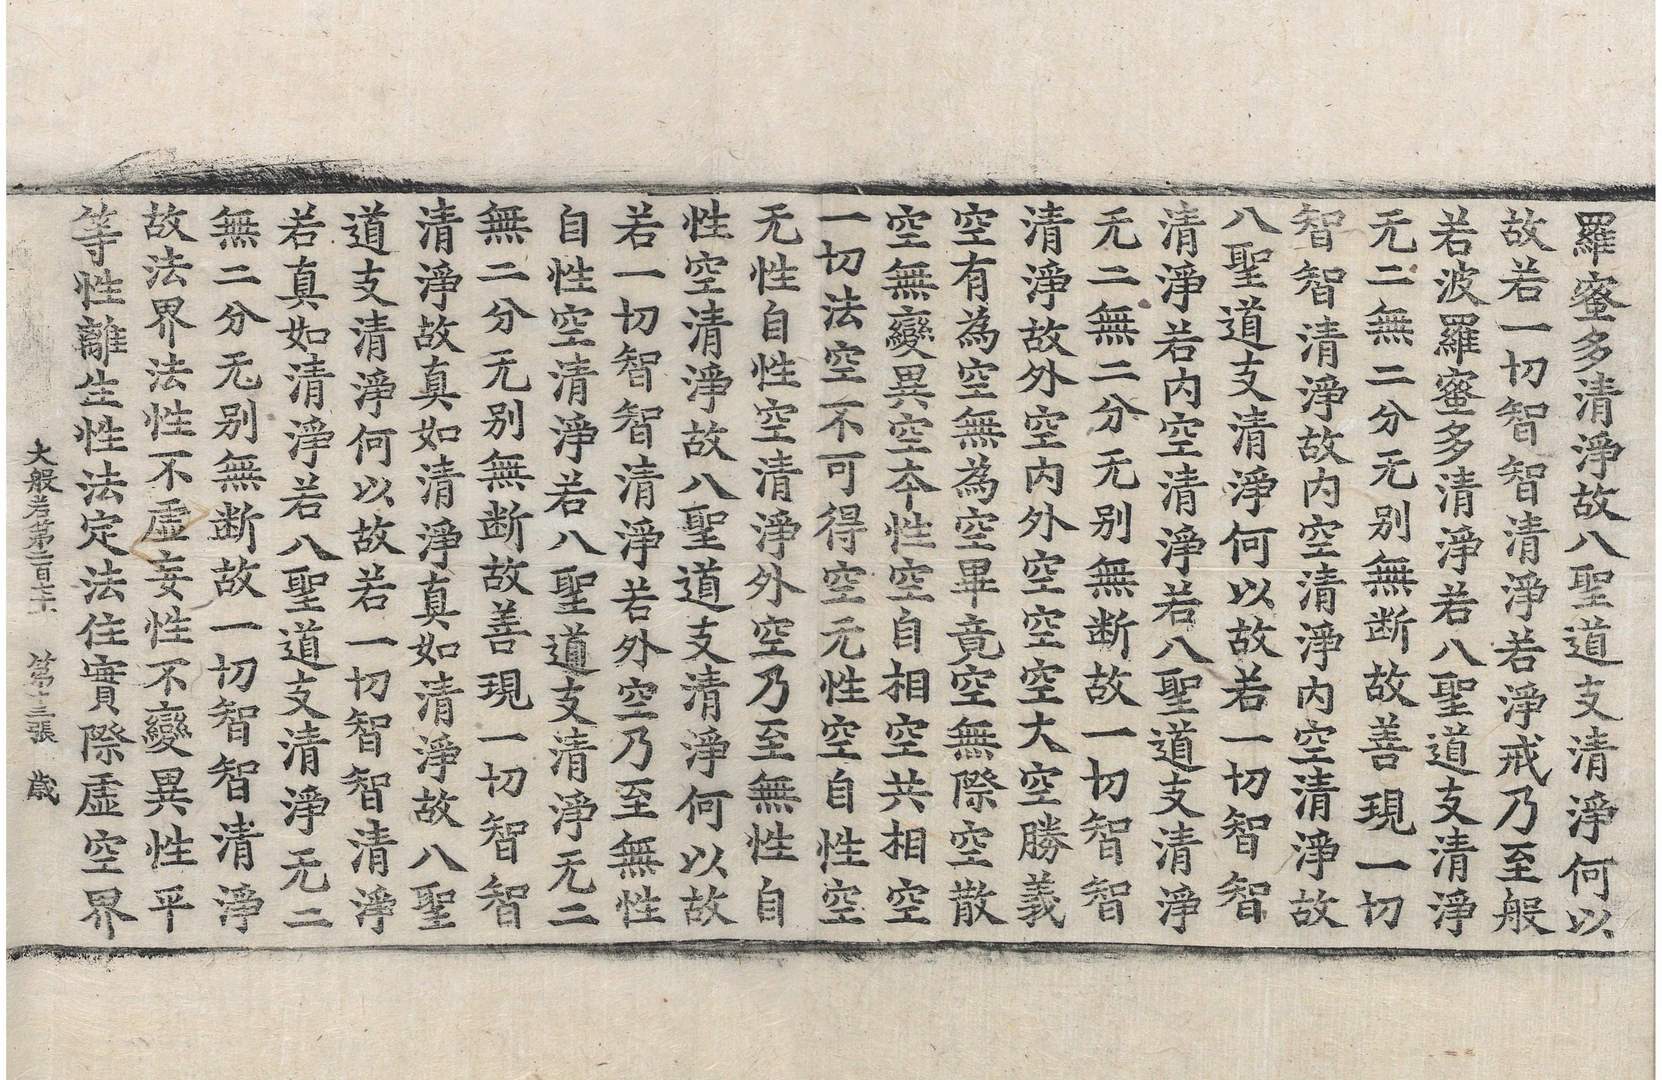 羅蜜多清淨故八聖道支清淨何以
故若一切智智清淨若淨戒乃至般
若波羅蜜多清淨若八聖道支清淨
无二無二分无别無断故善現一切
智智清淨故内空清淨内空清淨故
八聖道支清淨何以故若一切智智
清淨若内空清淨若八聖道支清淨
无二無二分无别無断故一切智智
清淨故外空内外空空空大空勝義
空有為空無為空畢竟空無際空散
空無變異空本性空自相空共相空
一切法空不可得空无性空自性空
无性自性空清淨外空乃至無性自
性空清淨故八聖道支清淨何以故
若一切智智清淨若外空乃至無性
自性空清淨若八聖道支清淨无二
無二分无别無断故善現一切智智
清淨故真如清淨真如清淨故八聖
道支清淨何以故若一切智智清淨
若真如清淨若八聖道支清淨无二
無二分无别無断故一切智智清淨
故法界法性不虛妄性不變異性平
等性離生性法定法住實際虛空界
大般若第二百 第十三張 歲